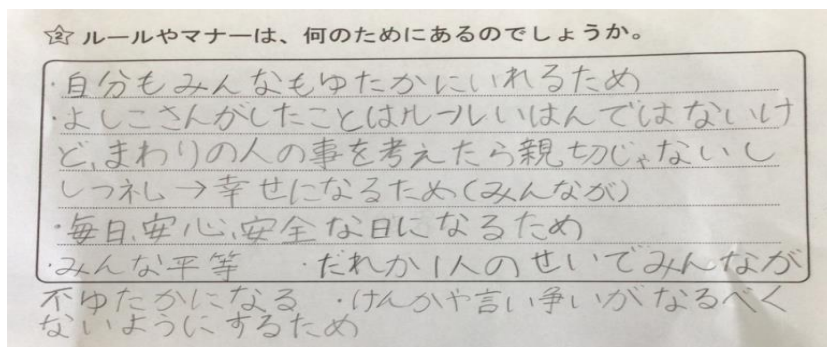 ☆2 ルールやマナーは、何のためにあるのでしょうか。
・自分もみんなもゆたかにいれるため
・よしこさんがしたことはルールいはんではないけ
ど、まわりの人の事を考えたら親切じゃないし
しつ礼→幸せになるため(みんなが)
・毎日、安心、安全な日になるため
・みんな平等 ・だれか1人のせいでみんなが
不ゆたかになる ・けんかや言い争いがなるべく
ないようにするため